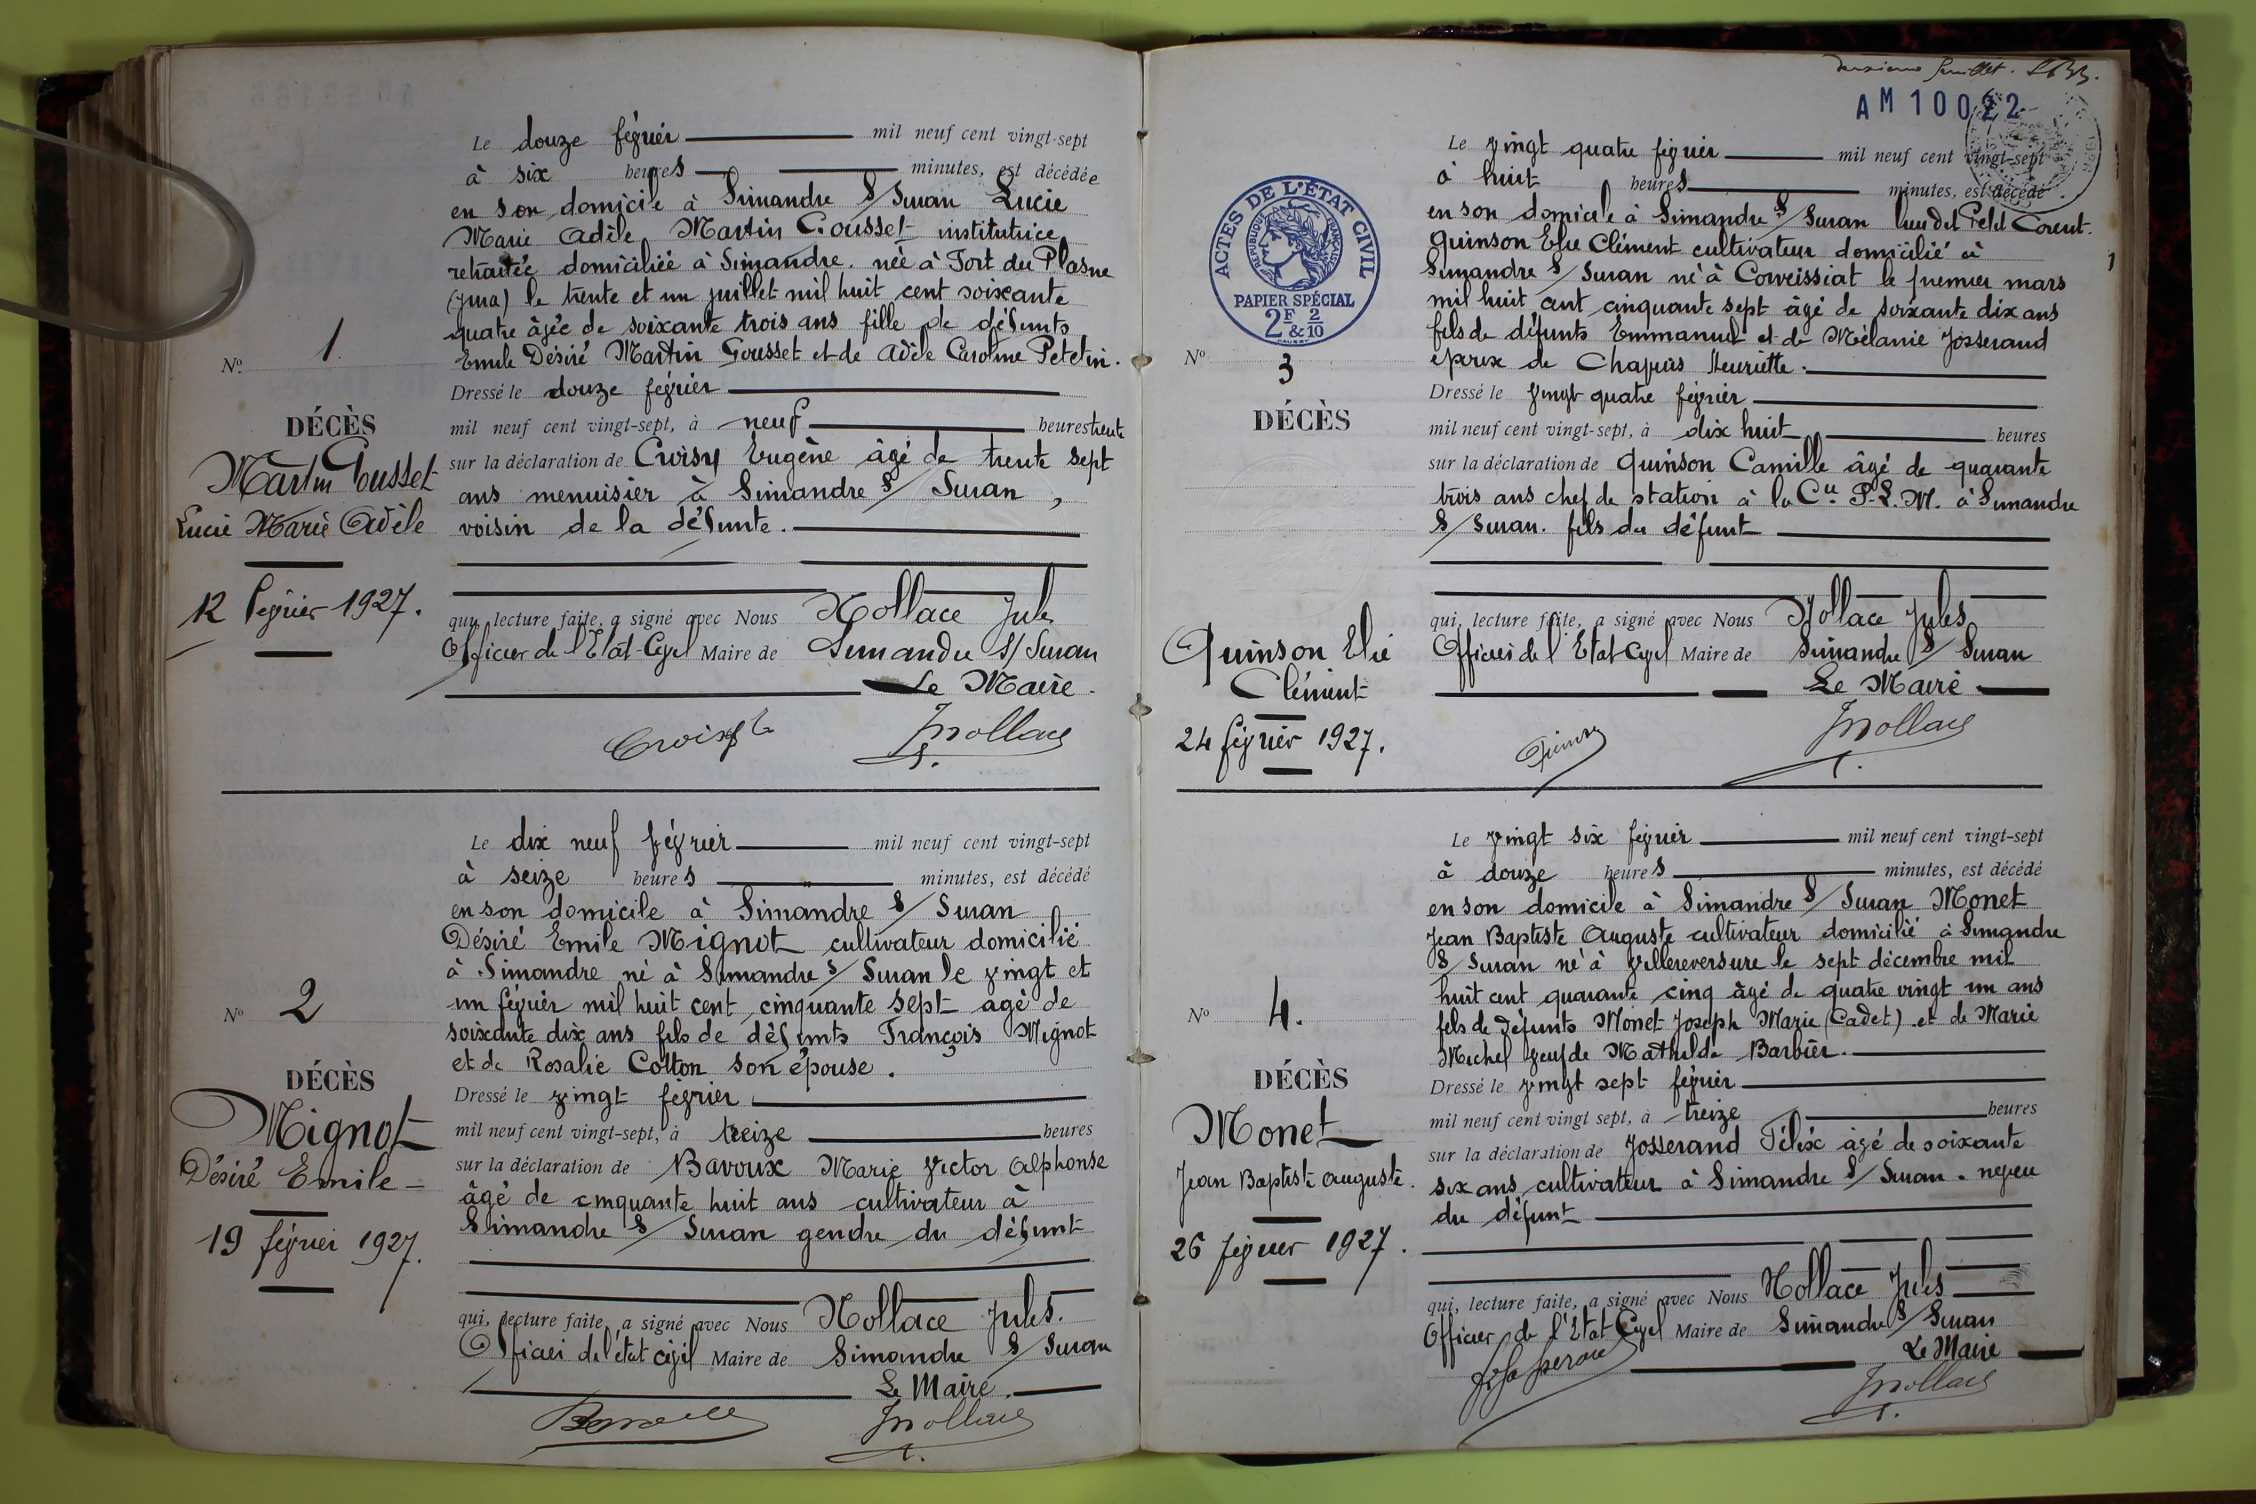 Le douze février mil neuf cent vingt-sept
à six heures minutes, est décédée
en son domicile à Simandre s/ Suran Lucie
Marie Adèle Martin Gousset institutrice
retraitée domiciliée à Simandre. née à Fort du Plasne
(Jura) le trente et un juillet mil huit cent soixante
quatre âgée de soixante trois ans fille de défunts
Emile Désiré Martin Gousset et de Adèle Caroline Petetin.
Dressé le douze février
mil neuf cent vingt-sept, à neuf heures trente
sur la déclaration de Croisy Eugène âgé de trente sept
ans menuisier à Simandre s/ Suran,
voisin de la défunte.
qui, lecture faite, a signé avec Nous Nollace Jules
Officier de l'Etat-Civil Maire de Simandre s/ Suran
Le Maire.
JNollace
No 1.
DÉCÈS
Martin Gousset
Lucie Marie Adèle
12 Février 1927.
Le dix neuf février mil neuf cent vingt-sept
à seize heures minutes, est décédé
en son domicile à Simandre s/ Suran
Désiré Emile Mignot cultivateur domicilié
à Simandre né à Simandre s/ Suran le vingt et
un février mil huit cent cinquante sept agé de
soixante dix ans fils de défunts François Mignot
et de Rosalie Cotton son épouse.
Dressé le vingt février
mil neuf cent vingt-sept, à treize heures
sur la déclaration de Bavoux Marie Victor Alphonse
âgé de cinquante huit ans cultivateur à
Simandre s/ Suran gendre du défunt
qui, lecture faite, a signé avec Nous Nollace Jules.
Officier de l'état civil Maire de Simandre s/ Suran
Le Maire.
Bavoux JNollace
No 2
DÉCÈS
Mignot
Désiré Emile
19 février 1927.
deuxième feuillet.
AM 10022
ACTES DE L'ÉTAT CIVIL
RÉPUBLIQUE FRANÇAISE
PAPIER SPÉCIAL
2F & 2/10
Le vingt quatre février mil neuf cent vingt-sept
à huit heures minutes, est décédé
en son domicile à Simandre s/ Suran lieu dit Petit Corent.
Quinson Elie Clément cultivateur domicilié à
Simandre s/ Suran né à Corveissiat le premier mars
mil huit cent cinquante sept âgé de soixante dix ans
fils de défunts Emmanuel et de Mélanie Josserand
époux de Chapuis Henriette.
Dressé le vingt quatre février
mil neuf cent vingt-sept, à dix huit heures
sur la déclaration de Quinson Camille âgé de quarante
trois ans chef de station à la Cie P.L.M. à Simandre
s/ Suran. fils du défunt
qui, lecture faite, a signé avec Nous Nollace Jules
Officier de l'Etat Civil Maire de Simandre s/ Suran
Le Maire.
JNollace
No 3
DÉCÈS
Quinson Elie
Clément
24 février 1927.
Le vingt six février mil neuf cent vingt-sept
à douze heures minutes, est décédé
en son domicile à Simandre s/ Suran Monet
Jean Baptiste Auguste cultivateur domicilié à Simandre
s/ Suran né à Villereversure le sept décembre mil
huit cent quarante cinq âgé de quatre vingt un ans
fils de défunts Monet Joseph Marie (Cadet) et de Marie
Michel veuf de Mathilde Barbier.
Dressé le vingt sept février
mil neuf cent vingt sept, à treize heures
sur la déclaration de Josserand Félix âgé de soixante
six ans cultivateur à Simandre s/ Suran. neveu
du défunt
qui, lecture faite, a signé avec Nous Nollace Jules
Officier de l'Etat Civil Maire de Simandre s/ Suran
Le Maire
Josserand JNollace
No 4.
DÉCÈS
Monet
Jean Baptiste Auguste.
26 février 1927.